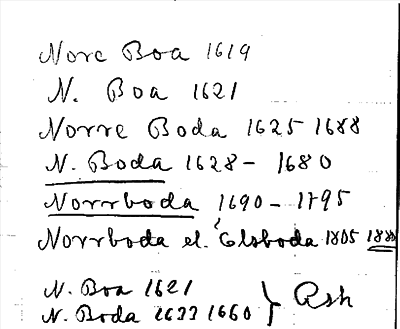 Nore Boa 1619
N. Boa 1621
Norre Boda 1625 1688
N. Boda 1628 - 1680
Norrboda 1690 - 1795
Norrboda el. Elsboda 1805
N. Boa 1621
N. Boda 1633 1660 } Rsk